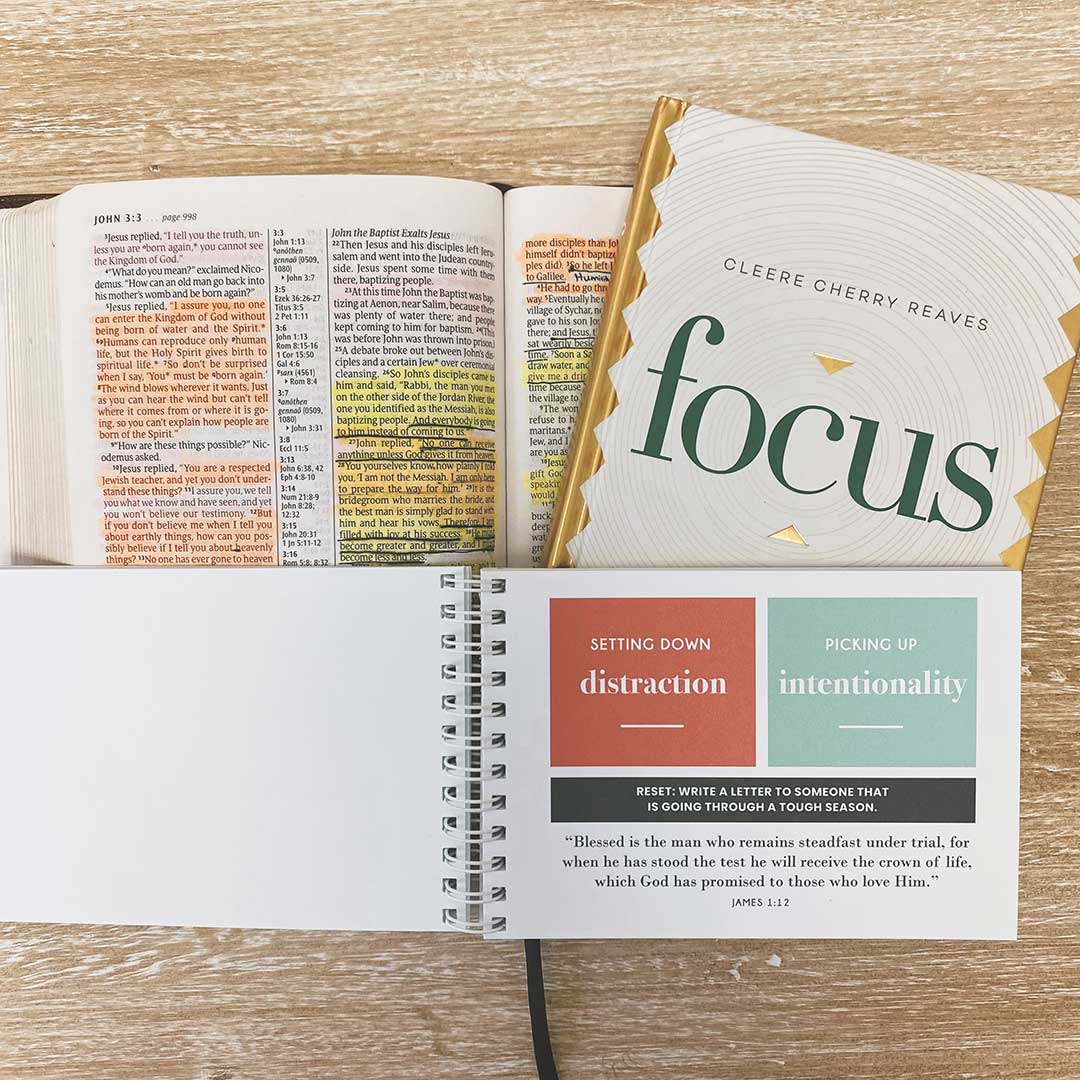 JOHN 3:3 ... page 998
³Jesus replied, “I tell you the truth, un-
less you are *born again,* you cannot see
the Kingdom of God.”
⁴“What do you mean?” exclaimed Nico-
demus. “How can an old man go back into
his mother’s womb and be born again?”
⁵Jesus replied, “I assure you, no one
can enter the Kingdom of God without
being born of water and the Spirit.*
⁶Humans can reproduce only *human
life, but the Holy Spirit gives birth to
spiritual life.* ⁷So don’t be surprised
when I say, ‘You* must be *born again.’
⁸The wind blows wherever it wants. Just
as you can hear the wind but can’t tell
where it comes from or where it is go-
ing, so you can’t explain how people are
born of the Spirit.”
⁹“How are these things possible?” Nic-
odemus asked.
¹⁰Jesus replied, “You are a respected
Jewish teacher, and yet you don’t under-
stand these things? ¹¹I assure you, we tell
you what we know and have seen, and yet
you won’t believe our testimony. ¹²But
if you don’t believe me when I tell you
about earthly things, how can you pos-
sibly believe if I tell you about heavenly
things? ¹³No one has ever gone to heaven
3:3
John 1:13
*anōthen
gennaō (0509,
1080)
▸ John 3:7
3:5
Ezek 36:26-27
Titus 3:5
2 Pet 1:11
3:6
John 1:13
Rom 8:15-16
1 Cor 15:50
Gal 4:6
*sarx (4561)
▸ Rom 8:4
3:7
*anōthen
gennaō (0509,
1080)
▸ John 3:31
3:8
Eccl 11:5
3:13
John 6:38, 42
Eph 4:8-10
3:14
Num 21:8-9
John 8:28;
12:32
3:15
John 20:31
1 Jn 5:11-12
3:16
Rom 5:8; 8:32
John the Baptist Exalts Jesus
²²Then Jesus and his disciples left Jeru-
salem and went into the Judean country-
side. Jesus spent some time with them
there, baptizing people.
²³At this time John the Baptist was bap-
tizing at Aenon, near Salim, because there
was plenty of water there; and people
kept coming to him for baptism. ²⁴(This
was before John was thrown into prison.)
²⁵A debate broke out between John’s dis-
ciples and a certain Jew* over ceremonial
cleansing. ²⁶So John’s disciples came to
him and said, “Rabbi, the man you met
on the other side of the Jordan River, the
one you identified as the Messiah, is also
baptizing people. And everybody is going
to him instead of coming to us.”
²⁷John replied, “No one can receive
anything unless God gives it from heaven.
²⁸You yourselves know how plainly I told
you, ‘I am not the Messiah. I am only here
to prepare the way for him.’ ²⁹It is the
bridegroom who marries the bride, and
the best man is simply glad to stand with
him and hear his vows. Therefore, I am
filled with joy at his success. ³⁰He must
become greater and greater, and I must
become less and less.
more disciples than Jo
himself didn’t baptize
ples did). ³So he left J
to Galilee.
⁴He had to go thro
way. ⁵Eventually he c
village of Sychar, ne
gave to his son Jos
there; and Jesus, t
sat wearily besid
time. ⁷Soon a Sa
draw water, and
give me a drin
time because
the village to
⁹The wom
refuse to h
maritans.*
Jew, and I
are you as
¹⁰Jesus
gift God
speaking
would
buck
deep
CLEERE CHERRY REAVES
focus
SETTING DOWN
distraction
PICKING UP
intentionality
RESET: WRITE A LETTER TO SOMEONE THAT
IS GOING THROUGH A TOUGH SEASON.
“Blessed is the man who remains steadfast under trial, for
when he has stood the test he will receive the crown of life,
which God has promised to those who love Him.”
JAMES 1:12